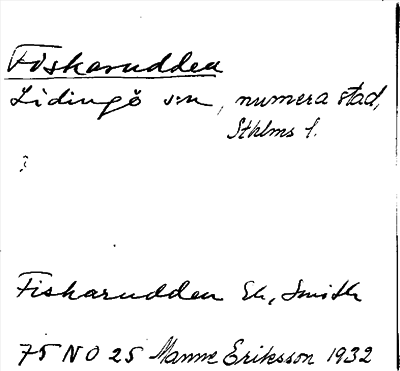 Fiskarudden
Lidingö sn, numera stad,
Sthlms l.
?
Fiskarudden Ek, Smith
75 NO 25 Manne Eriksson 1932